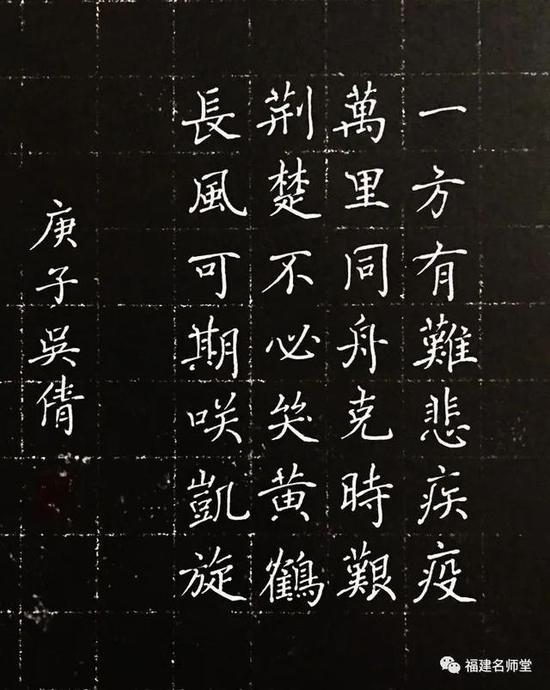 一方有難悲疾疫
萬里同舟克時艱
荆楚不必笑黄鶴
長風可期咲凱旋
庚子吳倩
福建名师堂